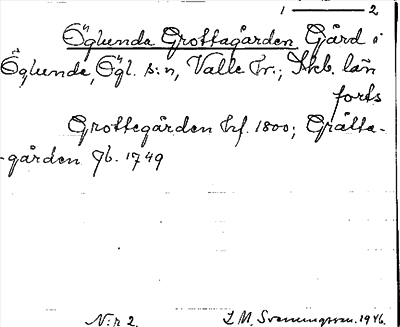 1 — 2
Öglunda Grottagården Gård i
Öglunda, Ögl. s:n, Valle hr.; Skb. län
forts
Grottegården hf. 1800; Grålta-
-gården Jb. 1749
N:r 2. I. M. Svenningsson. 1946.